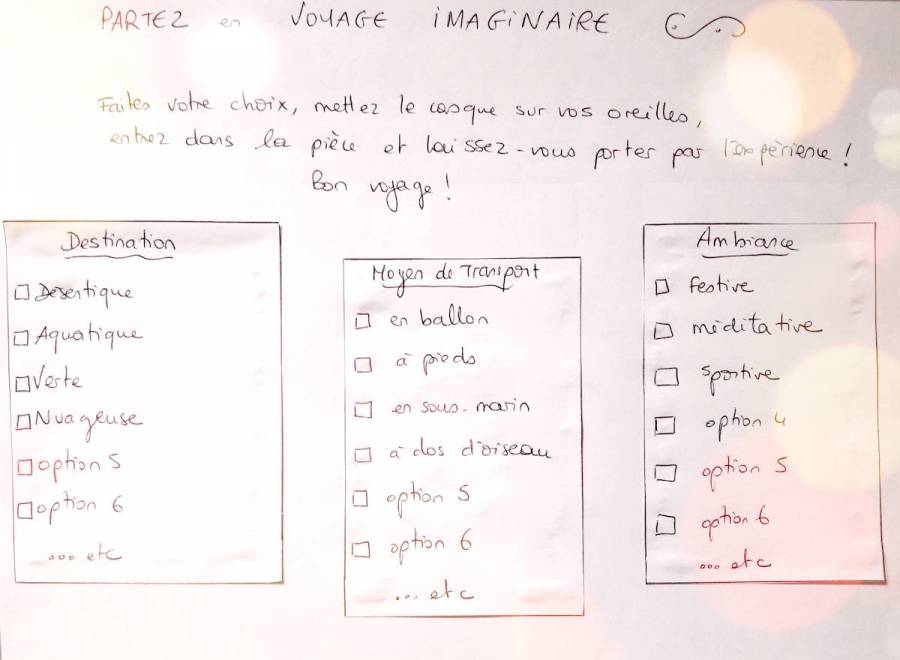 PARTEZ en VOYAGE IMAGINAIRE
Faites votre choix, mettez le casque sur vos oreilles,
entrez dans la pièce et laissez-vous porter par l'expérience !
Bon voyage !
Destination
Désertique
Aquatique
Verte
Nuageuse
option 5
option 6
.... etc
Moyen de Transport
en ballon
à pieds
en sous-marin
à dos d'oiseau
option 5
option 6
... etc
Ambiance
festive
méditative
sportive
option 4
option 5
option 6
... etc